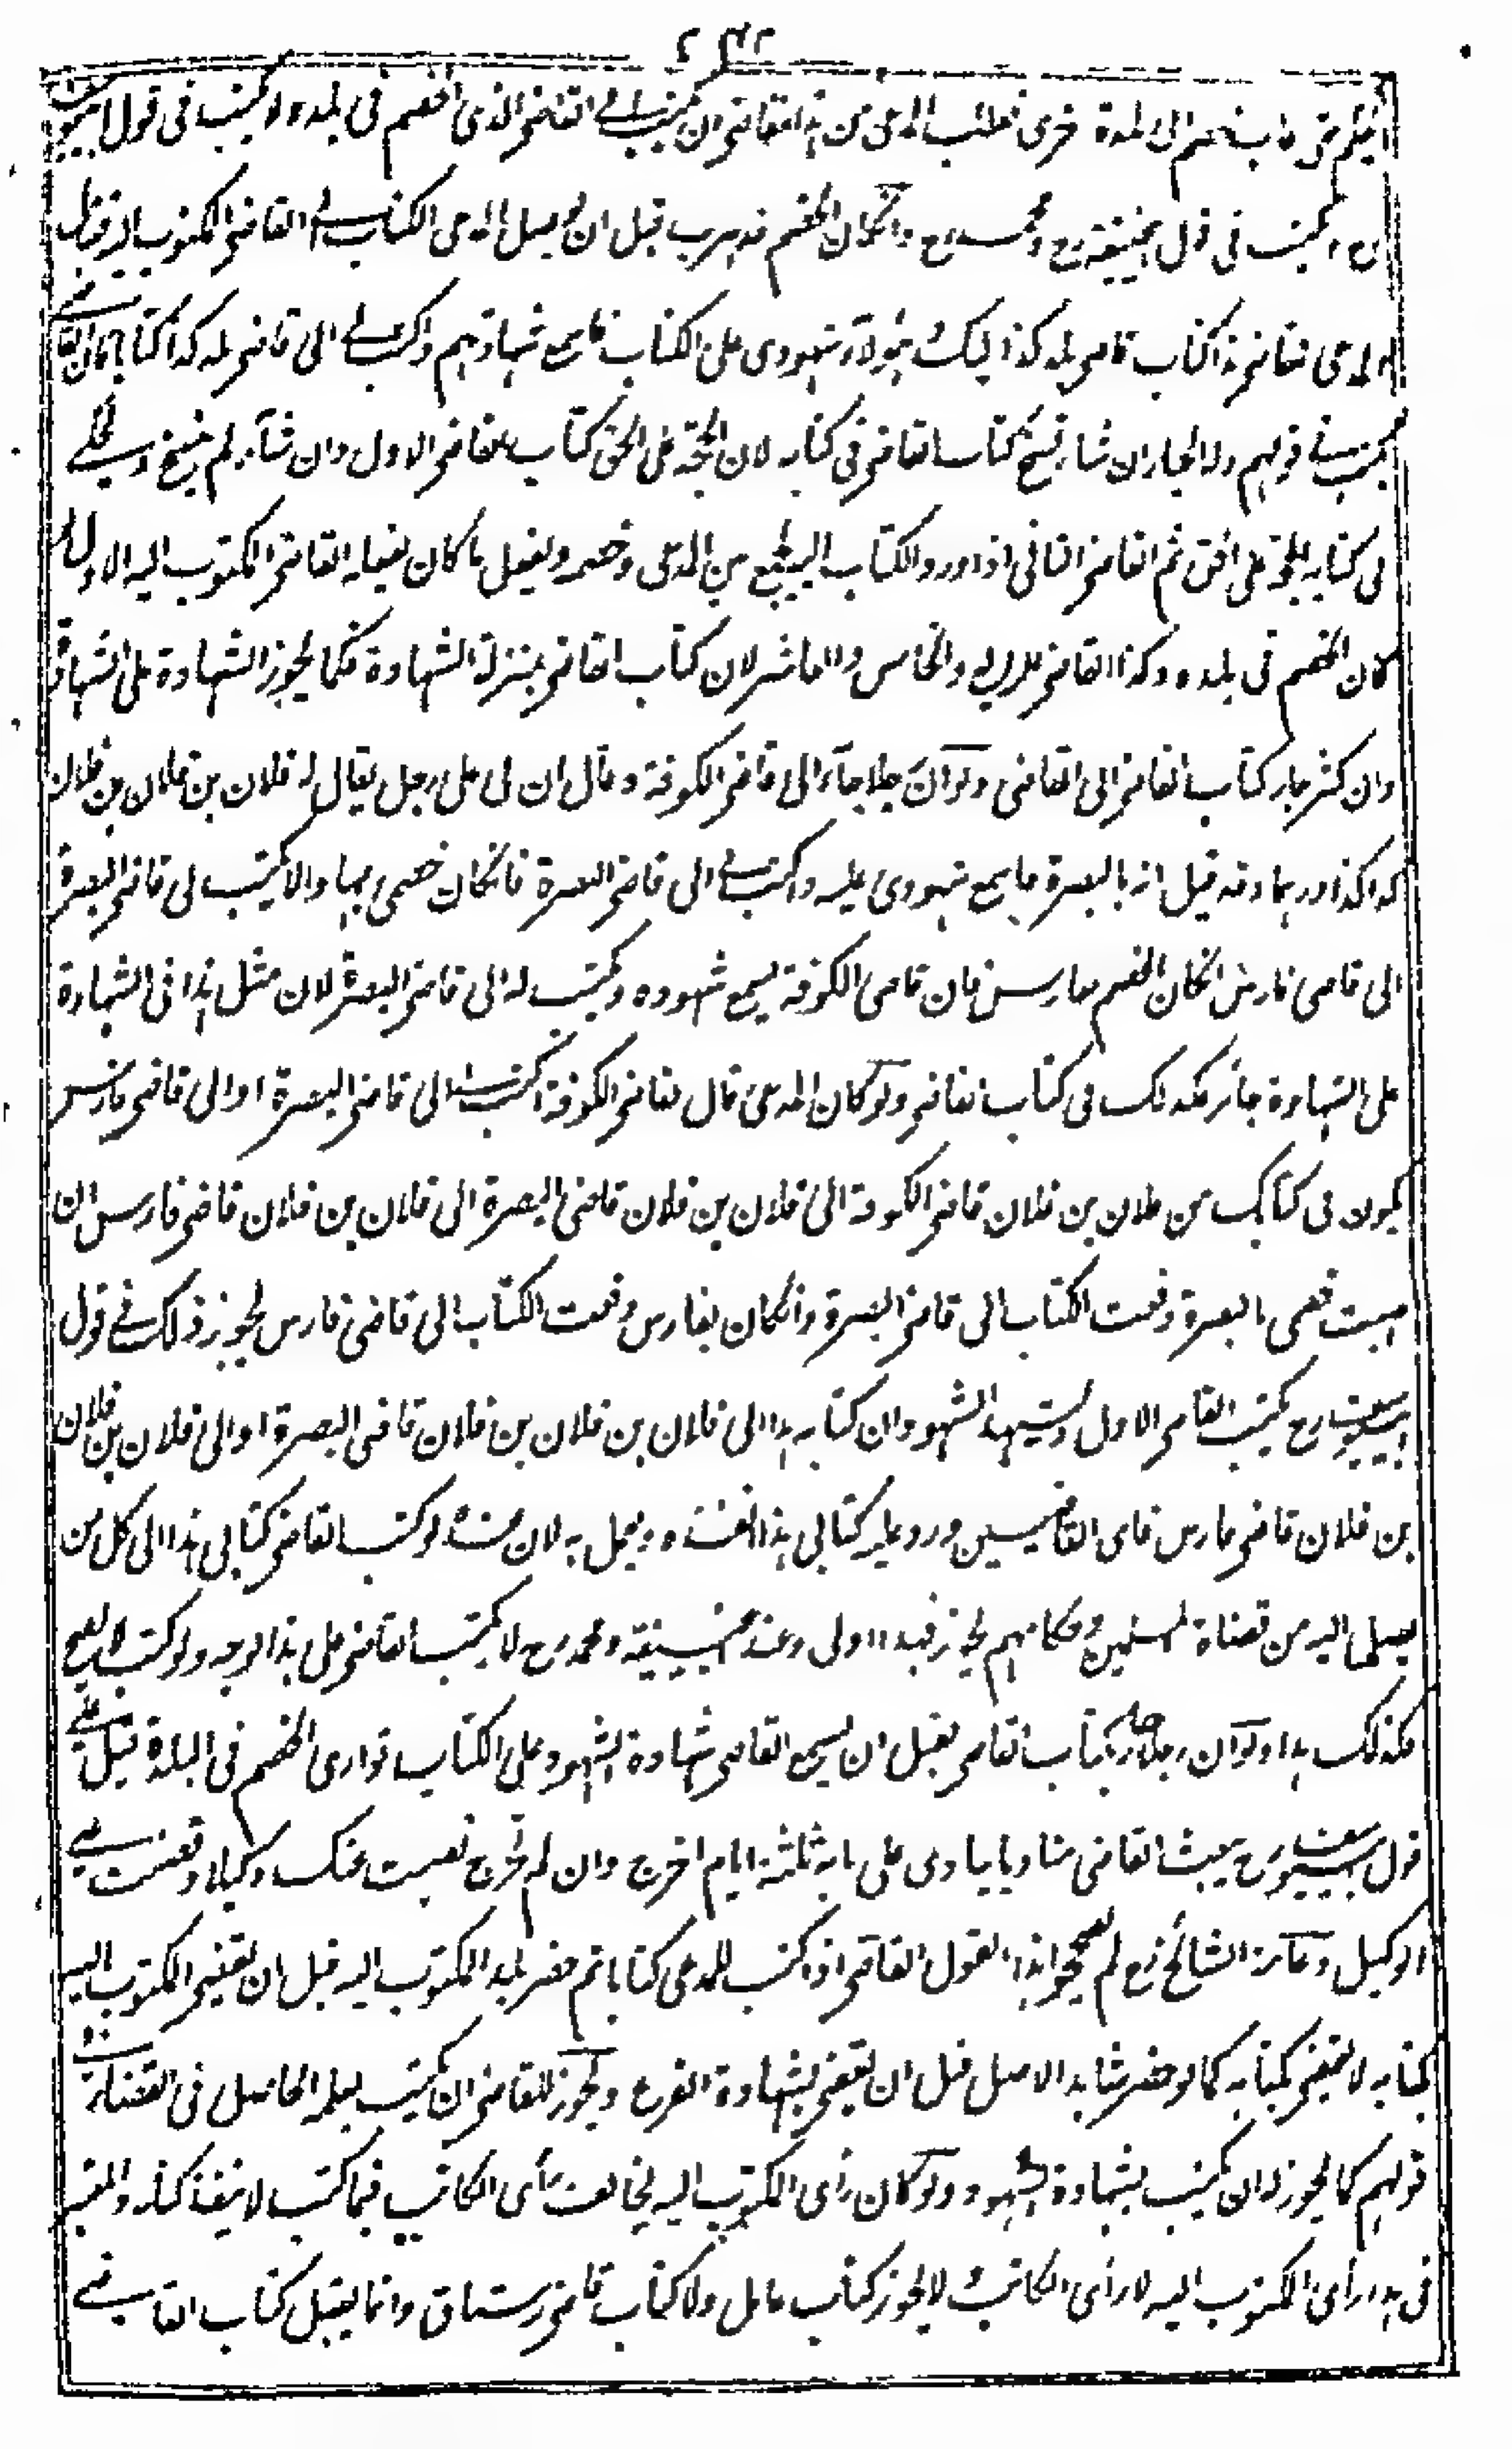 الخصم الى بلدة اخرى فطلب المدعى من هذا القاضى ان يكتب له الى القاضى الذى الخصم فى بلده لا يكتب فى قول
ويكتب فى قول ابيحنيفة رح ومحمد رح وانكان الخصم قد هرب قبل ان يوصل المدعى الكتاب الى القاضى المكتوب اليه فقال
المدعى لقاضى هذا كتاب قاضى بلد كذا اليك وهؤلاء شهودى على الكتاب فاسمع شهادتهم واكتب لى الى قاضى بلد كذا كتابا
يكتب فى قولهم وله الخيار ان شاء نسخ كتاب القاضى فى كتابه لان الحجة على الحق كتاب القاضى الاول وان شاء لم ينسخ ويحكى
فى كتابه الحجة على الحق ثم القاضى الثانى اذا ورد الكتاب اليه يجمع بين المدعى وخصمه ويفعل ما كان يفعله القاضى المكتوب اليه الاول لو
كان الخصم فى بلده وكذا القاضى الرابع والخامس والعاشر لان كتاب القاضى بمنزلة الشهادة فكما يجوز الشهادة على الشهادة
وان كثر جاز كتاب القاضى الى القاضى ولو ان رجلا جاء الى قاضى الكوفة وقال ان لى على رجل يقال له فلان بن فلان بن فلان
كذا كذا درهما وقد قيل انه بالبصرة فاسمع شهودى عليه واكتب لى الى قاضى البصرة فانكان خصمى بها والا يكتب لى قاضى البصرة
الى قاضى فارس انكان الخصم بفارس فان قاضى الكوفة يسمع شهوده ويكتب له الى قاضى البصرة لان مثل هذا فى الشهادة
على الشهادة جائز فكذلك فى كتاب القاضى ولو كان المدعى قال لقاضى الكوفة اكتب لى الى قاضى البصرة او الى قاضى فارس
يكون فى كتابك من فلان بن فلان قاضى الكوفة الى فلان بن فلان قاضى البصرة الى فلان بن فلان قاضى فارس ان
اصبت خصمى بالبصرة دفعت الكتاب الى قاضى البصرة وانكان بفارس دفعت الكتاب الى قاضى فارس يجوز ذلك فى قول
ابيوسف رح يكتب القاضى الاول ويشهد الشهود ان كتابه هذا الى فلان بن فلان بن فلان قاضى البصرة او الى فلان بن فلان
بن فلان قاضى فارس فاى القاضيين ورد عليه كتابى هذا انفذه ويعمل به لان عنده لو كتب القاضى كتابى هذا الى كل من
يصل اليه من قضاة المسلمين وحكامهم يجوز فهذا اولى وعند ابيحنيفة ومحمد رح لا يكتب القاضى على هذا الوجه ولو كتب لا يصح
فكذلك هذا ولو ان رجلا جاء بكتاب القاضى فقبل ان يسمع القاضى شهادة الشهود على الكتاب توارى الخصم فى البلدة قيل على
قول ابيوسف رح يبعث القاضى مناديا ينادى على بابه ثلثة ايام اخرج وان لم تخرج نصبت عنك وكيلا وقضيت على
الوكيل وعامة المشائخ رح لم يصححوا هذا القول القاضى اذا كتب للمدعى كتابا ثم حضر بلد المكتوب اليه قبل ان يقضى المكتوب اليه
بكتابه لا يقضى بكتابه كما لو حضر شاهد الاصل قبل ان يقضى بشهادة الفرع ويجوز للقاضى ان يكتب بعلمه الحاصل فى القضاء
قولهم كما يجوز له ان يكتب بشهادة الشهود ولو كان رأى المكتوب اليه يخالف رأى الكاتب فيما كتب لا ينفذ كتابه والمعتبر
فى هذا رأى المكتوب اليه لا رأى الكاتب و لا يجوز كتاب عامل ولا كتاب قاضى رستاق وانما يقبل كتاب القاضى